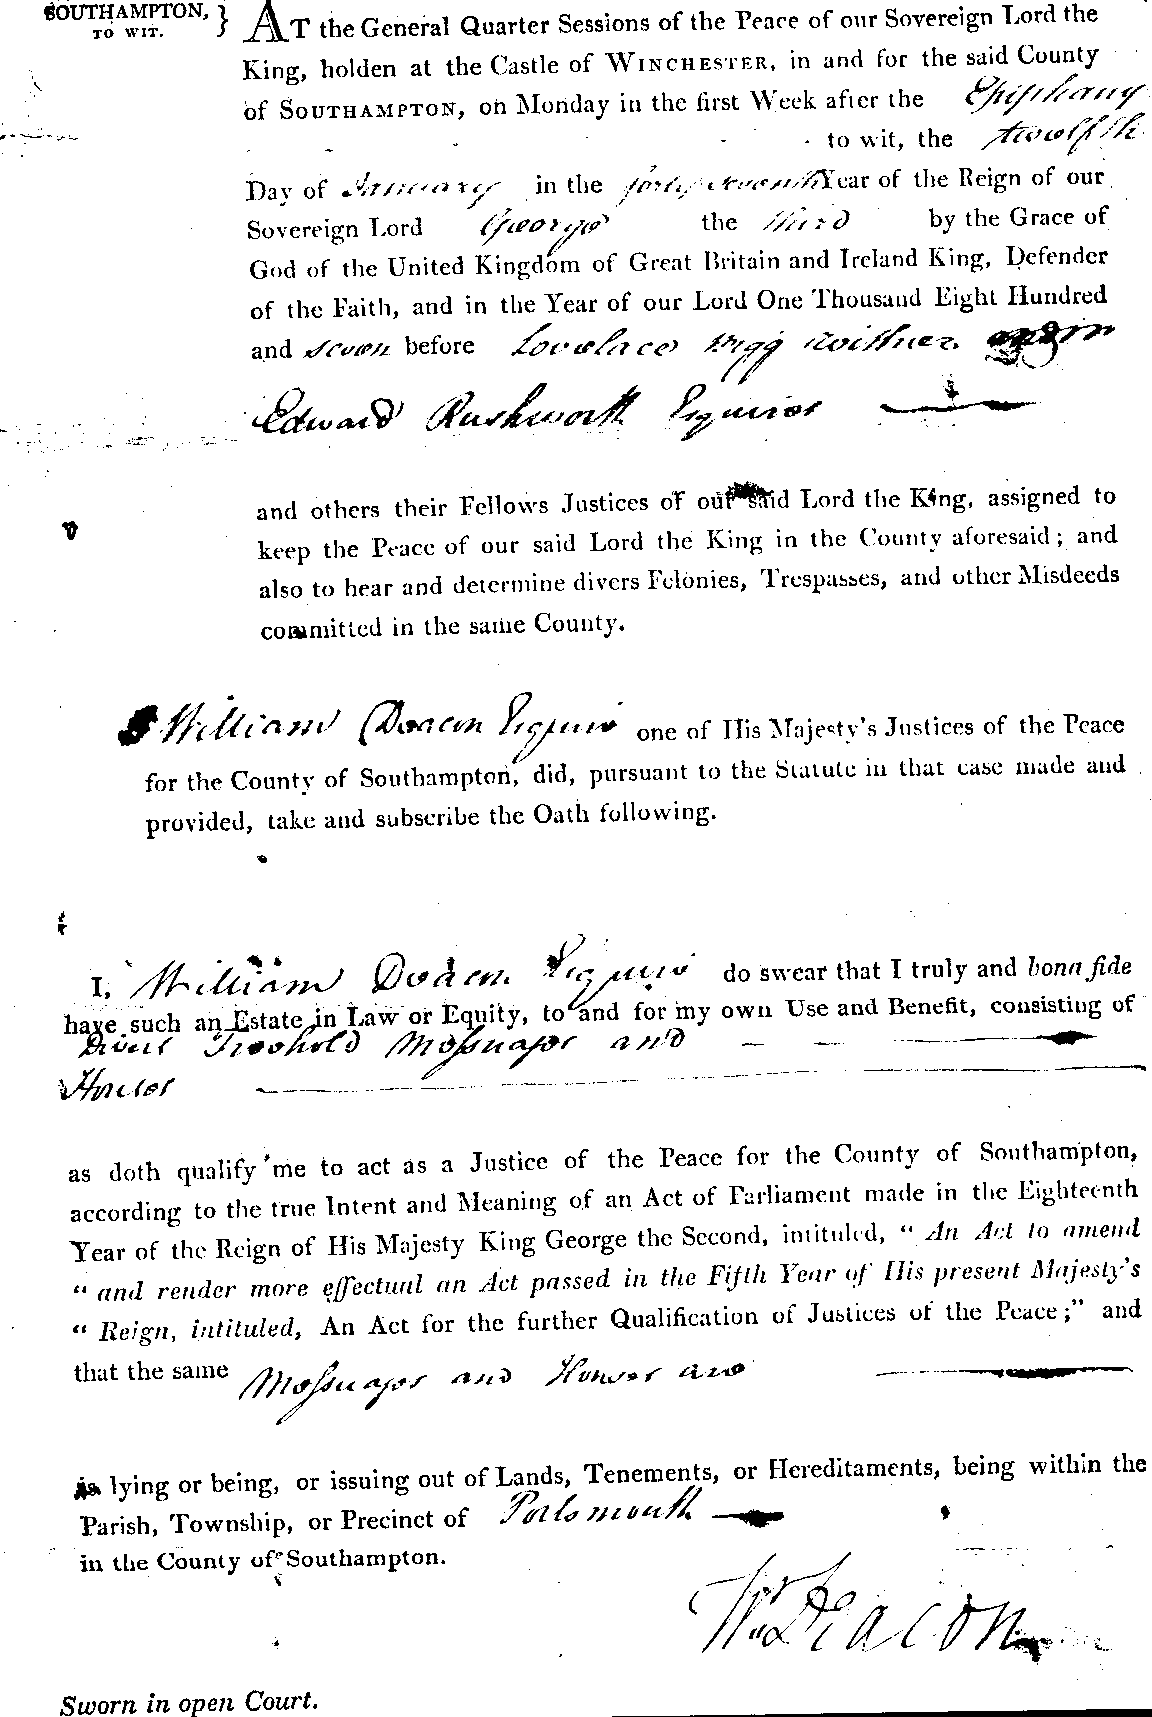 SOUTHAMPTON, }
TO WIT.
AT the General Quarter Sessions of the Peace of our Sovereign Lord the
King, holden at the Castle of WINCHESTER, in and for the said County
of SOUTHAMPTON, on Monday in the first Week after the Epiphany
to wit, the twelfth
Day of January in the forty seventh Year of the Reign of our
Sovereign Lord George the third by the Grace of
God of the United Kingdom of Great Britain and Ireland King, Defender
of the Faith, and in the Year of our Lord One Thousand Eight Hundred
and seven before Lovelace Bigg Wither
Edward Rushworth Esquires
and others their Fellows Justices of our said Lord the King, assigned to
keep the Peace of our said Lord the King in the County aforesaid; and
also to hear and determine divers Felonies, Trespasses, and other Misdeeds
committed in the same County.
William Deacon Esquire one of His Majesty's Justices of the Peace
for the County of Southampton, did, pursuant to the Statute in that case made and
provided, take and subscribe the Oath following.
I, William Deacon Esquire do swear that I truly and bona fide
have such an Estate in Law or Equity, to and for my own Use and Benefit, consisting of
Divers Freehold Messuages and
Houses
as doth qualify me to act as a Justice of the Peace for the County of Southampton,
according to the true Intent and Meaning of an Act of Parliament made in the Eighteenth
Year of the Reign of His Majesty King George the Second, intituled, " An Act to amend
" and render more effectual an Act passed in the Fifth Year of His present Majesty's
" Reign, intituled, An Act for the further Qualification of Justices of the Peace;" and
that the same Messuages and Houses are
lying or being, or issuing out of Lands, Tenements, or Hereditaments, being within the
Parish, Township, or Precinct of Portsmouth
in the County of Southampton.
Wm Deacon
Sworn in open Court.